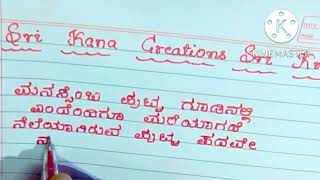 Sri Kana Creations Sri K
KINEMASTER
ಮನಸ್ಸೆಂಬ ಪುಟ್ಟ ಗೂಡಿನಲ್ಲಿ
ಎಂದೆಂದಿಗೂ ಮರೆಯಾಗದೆ
ನೆಲೆಯಾಗಿರುವ ಪುಟ್ಟ ಪದವೇ